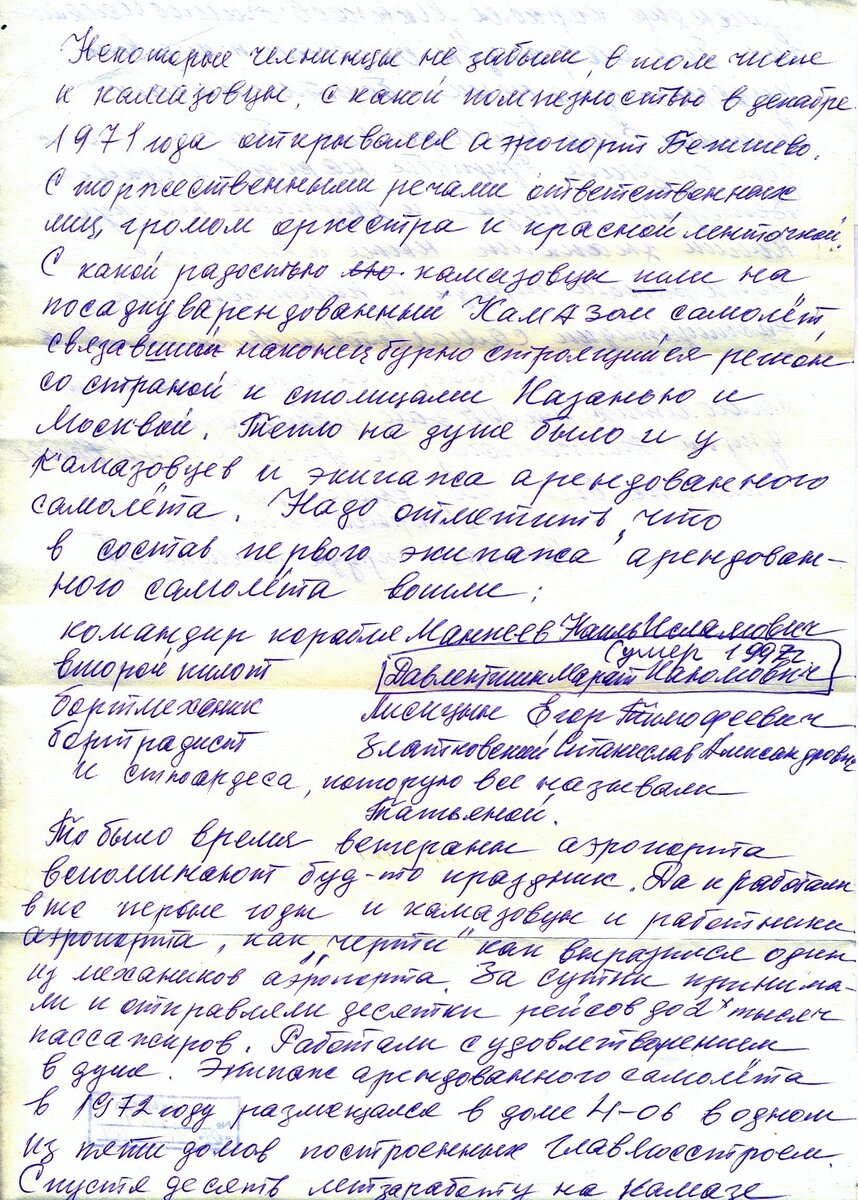 Некоторые челнинцы не забыли, в том числе
и камазовцы, с какой помпезностью в декабре
1971 года открывался аэропорт Бегишево.
С торжественными речами ответственных
лиц, громом оркестра и красной ленточкой.
С какой радостью камазовцы шли на
посадку в арендованный КамАЗом самолёт,
связавший наконец бурно строящийся регион
со страной и столицами Казанью и
Москвой. Тепло на душе было и у
камазовцев и экипажа арендованного
самолёта. Надо отметить, что
в состав первого экипажа арендован-
ного самолёта вошли:
командир корабля Маннеев Наиль Исламович
Сумер 1997г
второй пилот Давлетшин Марат Накомович
бортмеханик Лисицын Егор Тимофеевич
бортрадист Златковский Станислав Александрович
и стюардеса, которую все называли
Татьяной.
То было время ветераны аэропорта
вспоминают буд-то праздник. Да и работали
в те первые годы и камазовцы и работники
аэропорта, как "черти" как выразился один
из механиков аэропорта. За сутки принима-
ли и отправляли десятки рейсов до 2х тысяч
пассажиров. Работали с удовлетворением
в душе. Экипаж арендованного самолёта
в 1972 году размещался в доме 4-06 в одном
из пяти домов построенных Главмосстроем.
Спустя десять лет заработу на Камазе